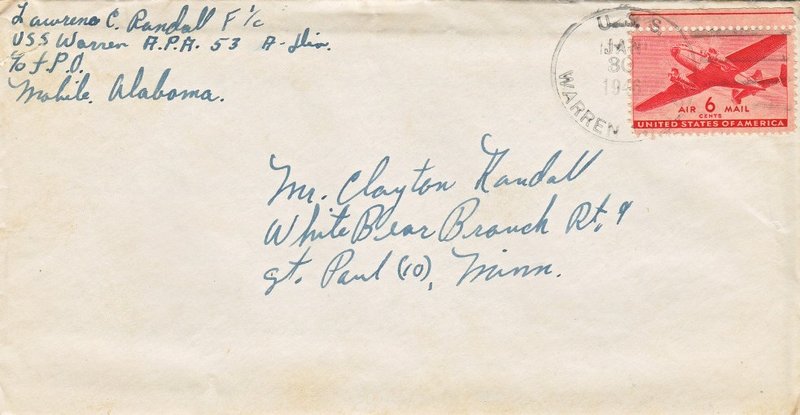 Lawrenc C. Randall F 1/c
USS Warren A.P.A. 53 A-Div.
c/o F.P.O.
Mobile. Alabama.
U.S.S.
JAN
30
1946
WARREN
AIR 6 MAIL
CENTS
UNITED STATES OF AMERICA
Mr. Clayton Randall
White Bear Branch Rt. 9
St. Paul (10), Minn.